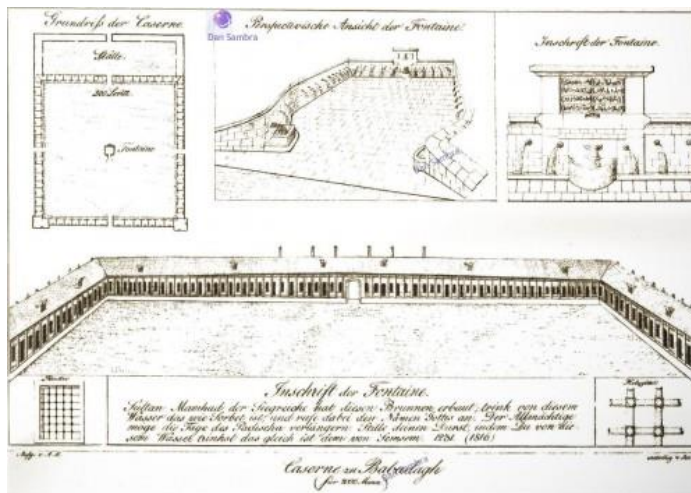 Grundriß der Caserne.
Ställe.
200 Schritt
Fontaine
Dan Sambra
Perspectivische Ansicht der Fontaine.
Inschrift der Fontaine.
Fenster
Inschrift der Fontaine.
Sultan Mamhud, der Siegreiche hat diesen Brunnen erbaut; trink von diesem
Wasser das wie Sorbet ist, und rufe dabei den Namen Gottes an. Der Allmächtige
möge die Tage des Padischa verlängern. Stille deinen Durst, indem Du von die-
sem Wasser trinkst das gleich ist dem von Semsem. (1816)
Caserne zu Babadagh
für 2000 Mann